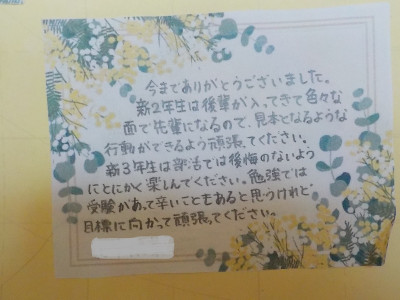 今までありがとうございました。
新2年生は後輩が入ってきて色々な
面で先輩になるので、見本となるような
行動ができるよう頑張ってください。
新3年生は部活では後悔のないよう
にとにかく楽しんでください。勉強では
受験があって辛いこともあると思うけれど、
目標に向かって頑張ってください。